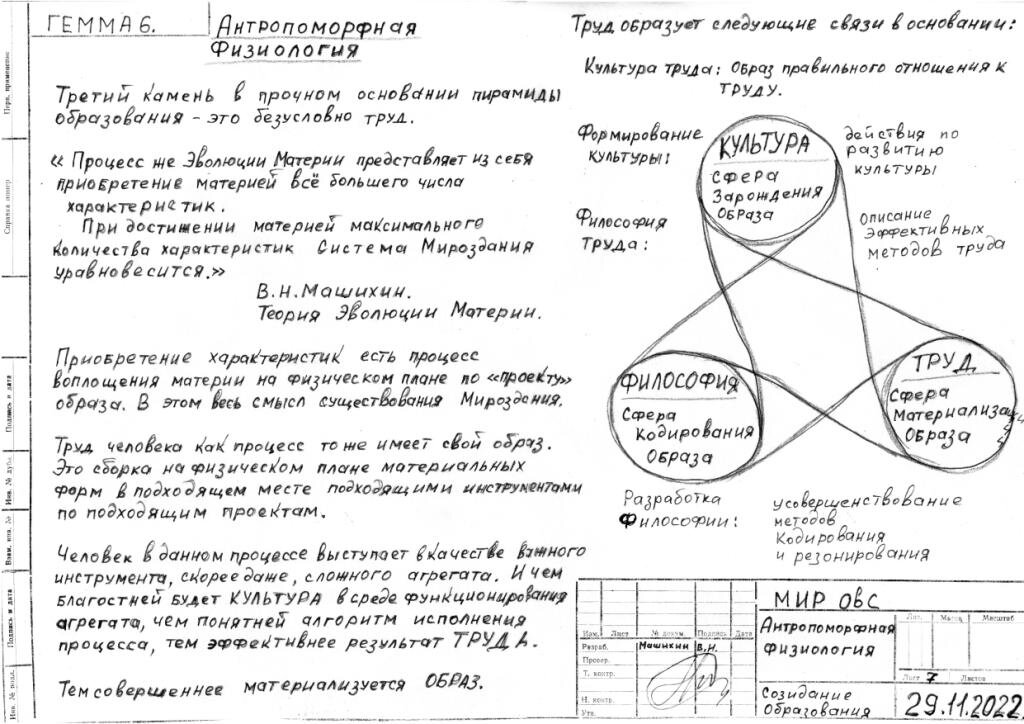 ГЕММА 6.
Антропоморфная
Физиология
Третий камень в прочном основании пирамиды
образования - это безусловно труд.
« Процесс же Эволюции Материи представляет из себя
приобретение материей всё большего числа
характеристик.
При достижении материей максимального
количества характеристик Система Мироздания
уравновесится.»
В.Н.Машихин.
Теория Эволюции Материи.
Приобретение характеристик есть процесс
воплощения материи на физическом плане по «проекту»
образа. В этом весь смысл существования Мироздения.
Труд человека как процесс тоже имеет свой образ.
Это сборка на физическом плане материальных
форм в подходящем месте подходящими инструментами
по подходящим проектам.
Человек в данном процессе выступает в качестве важного
инструмента, скорее даже, сложного агрегата. И чем
благостней будет КУЛЬТУРА в среде функционирования
агрегата, чем понятней алгоритм исполнения
процесса, тем эффективнее результат ТРУДА.
Тем совершеннее материализуется ОБРАЗ.
Труд образует следующие связи в основании:
Культура труда: Образ правильного отношения к
труду.
Формирование
культуры:
действия по
развитию
культуры
КУЛЬТУРА
Сфера
Зарождения
Образа
Философия
Труда:
Описание
Эффективных
методов труда
ФИЛОСОФИЯ
Сфера
Кодирования
Образа
ТРУД
Сфера
Материализации
Образа
Разработка
Философии:
усовершенствование
методов
Кодирования
и резонирования
МИР ОВС
Антропоморфная
Физиология
Созидание
Образования
29.11.2022
Изм. Лист № докум. Подпись Дата
Разраб. Машихин В.Н.
Провер.
Т. контр.
Н. контр.
Утв.
Лит. Масса Масштаб
Лист 7 Листов
Перв. применение
Справка номер
Подпись и дата
Инв. № дубл.
Взам. инв. №
Подпись и дата
Инв. № подл.